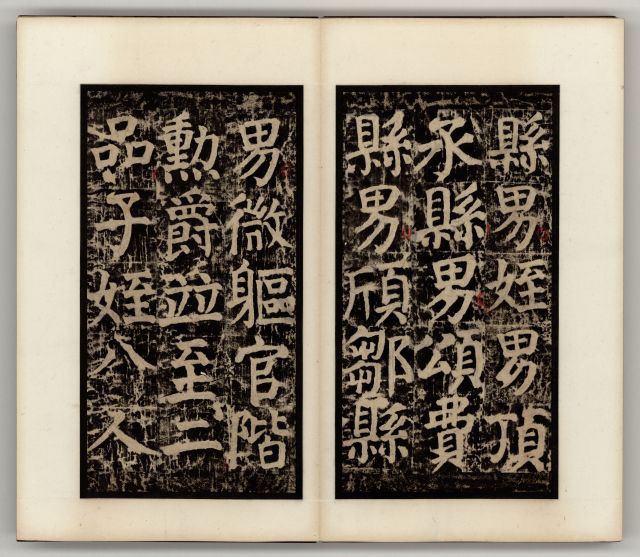 縣男姪男頂
承縣男頌費
縣男頎鄒縣
男微軀官階
勳爵竝至二
品子姪八人